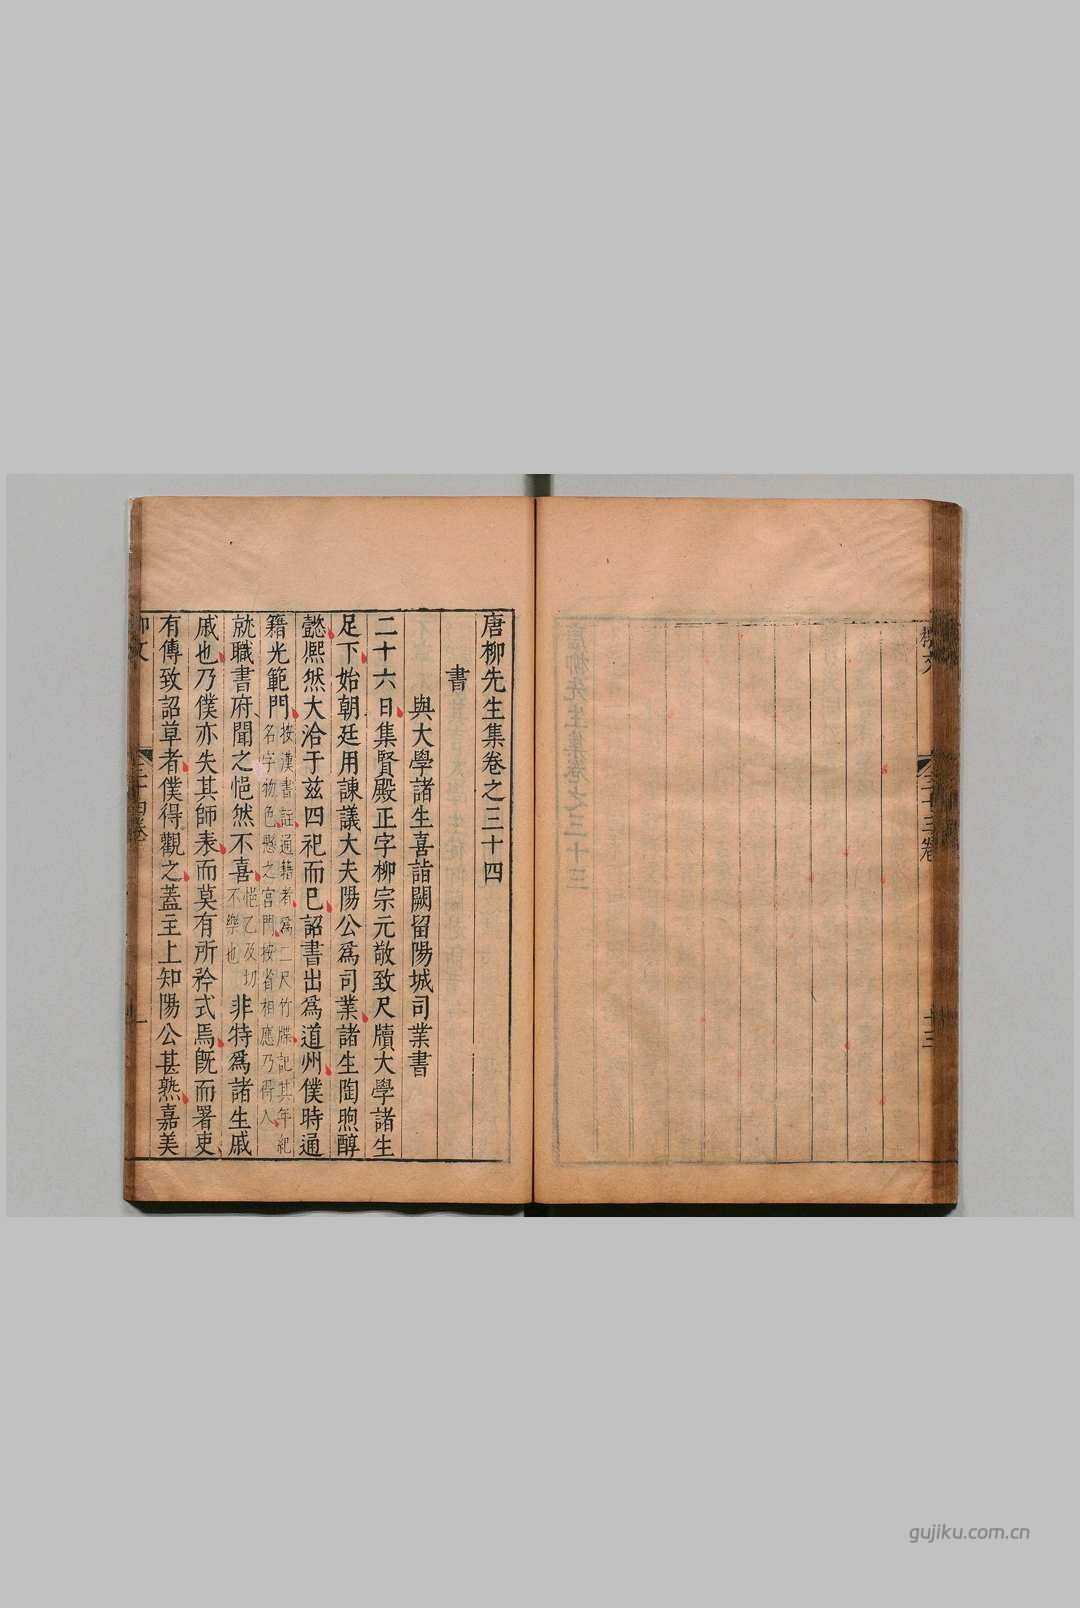 唐柳先生集卷之三十四
書
與大學諸生喜詣闕留陽城司業書
二十六日集賢殿正字柳宗元敬致尺牘大學諸生
足下始朝廷用諫議大夫陽公爲司業諸生陶煦醇
懿熈然大洽于茲四祀而已詔書出爲道州僕時通
籍光範門按漢書註通籍者爲二尺竹牒記其年紀
名字物色懸之宮門按省相應乃得入
就職書府聞之悒然不喜悒乙及切
不樂也非特爲諸生戚
戚也乃僕亦失其師表而莫有所矜式焉旣而署吏
有傳致詔草者僕得觀之蓋主上知陽公甚熟嘉美
三十四卷
一
三十三卷
十三
gujiku.com.cn